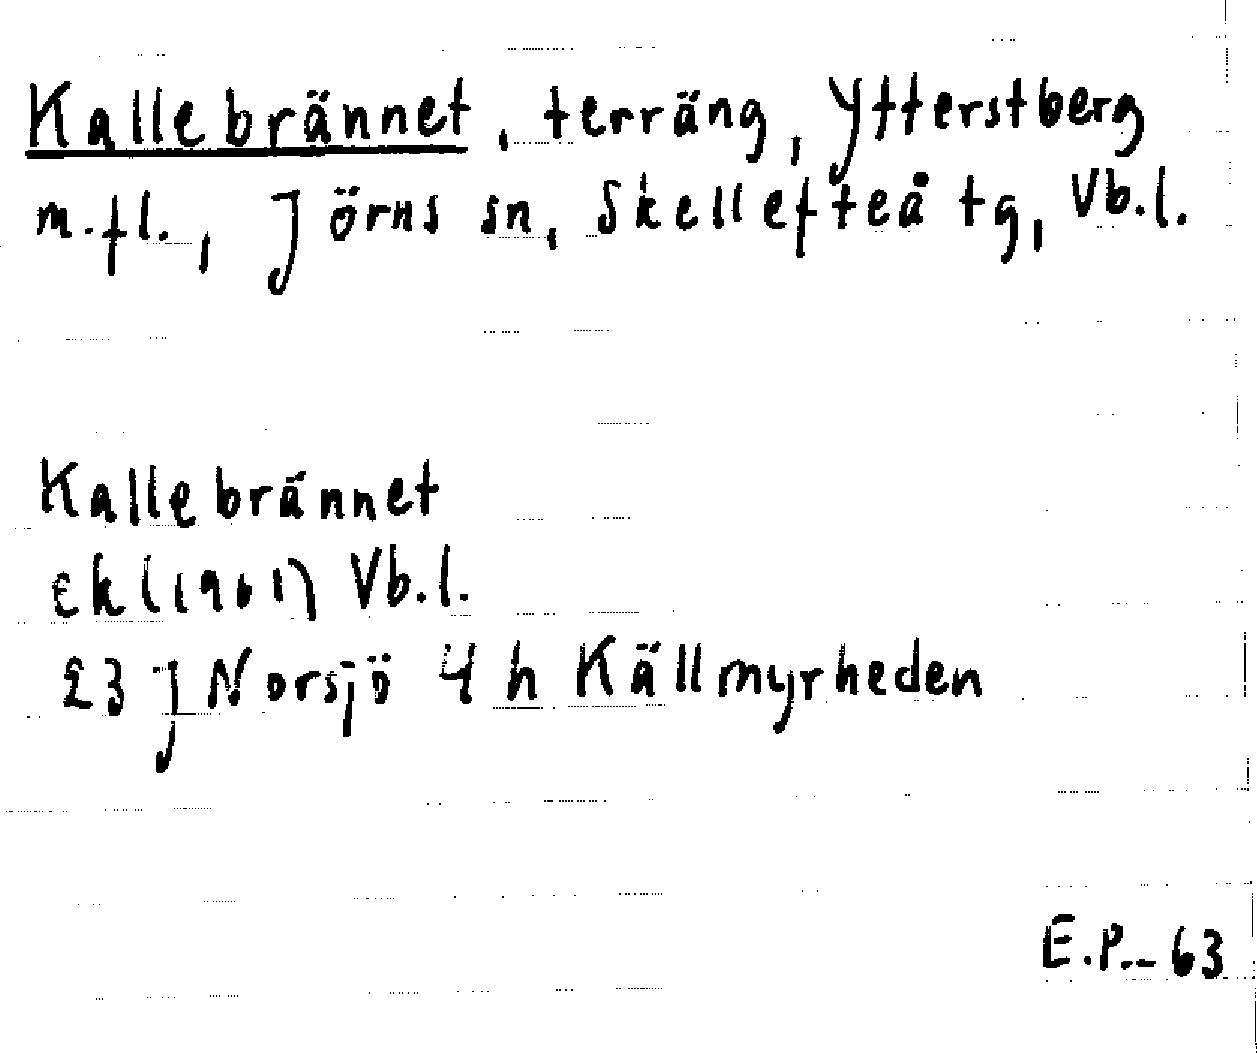 Kallebrännet, terräng, Ytterstberg
m.fl., Jörns sn, Skellefteå tg, Vb.l.
Kallebrännet
ekl(1961) Vb.l.
23 J Norsjö 4 h Källmyrheden
E.P.-63